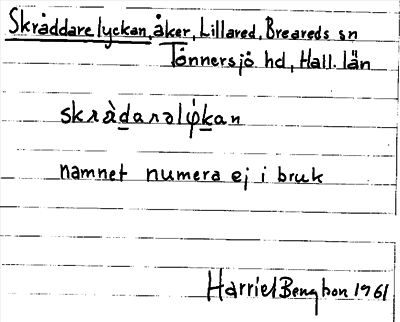 Skräddarelyckan, åker, Lillared, Breareds sn
Tönnersjö hd, Hall. län
skrädarəlykan
namnet numera ej i bruk
Harriet Bengtson 1961